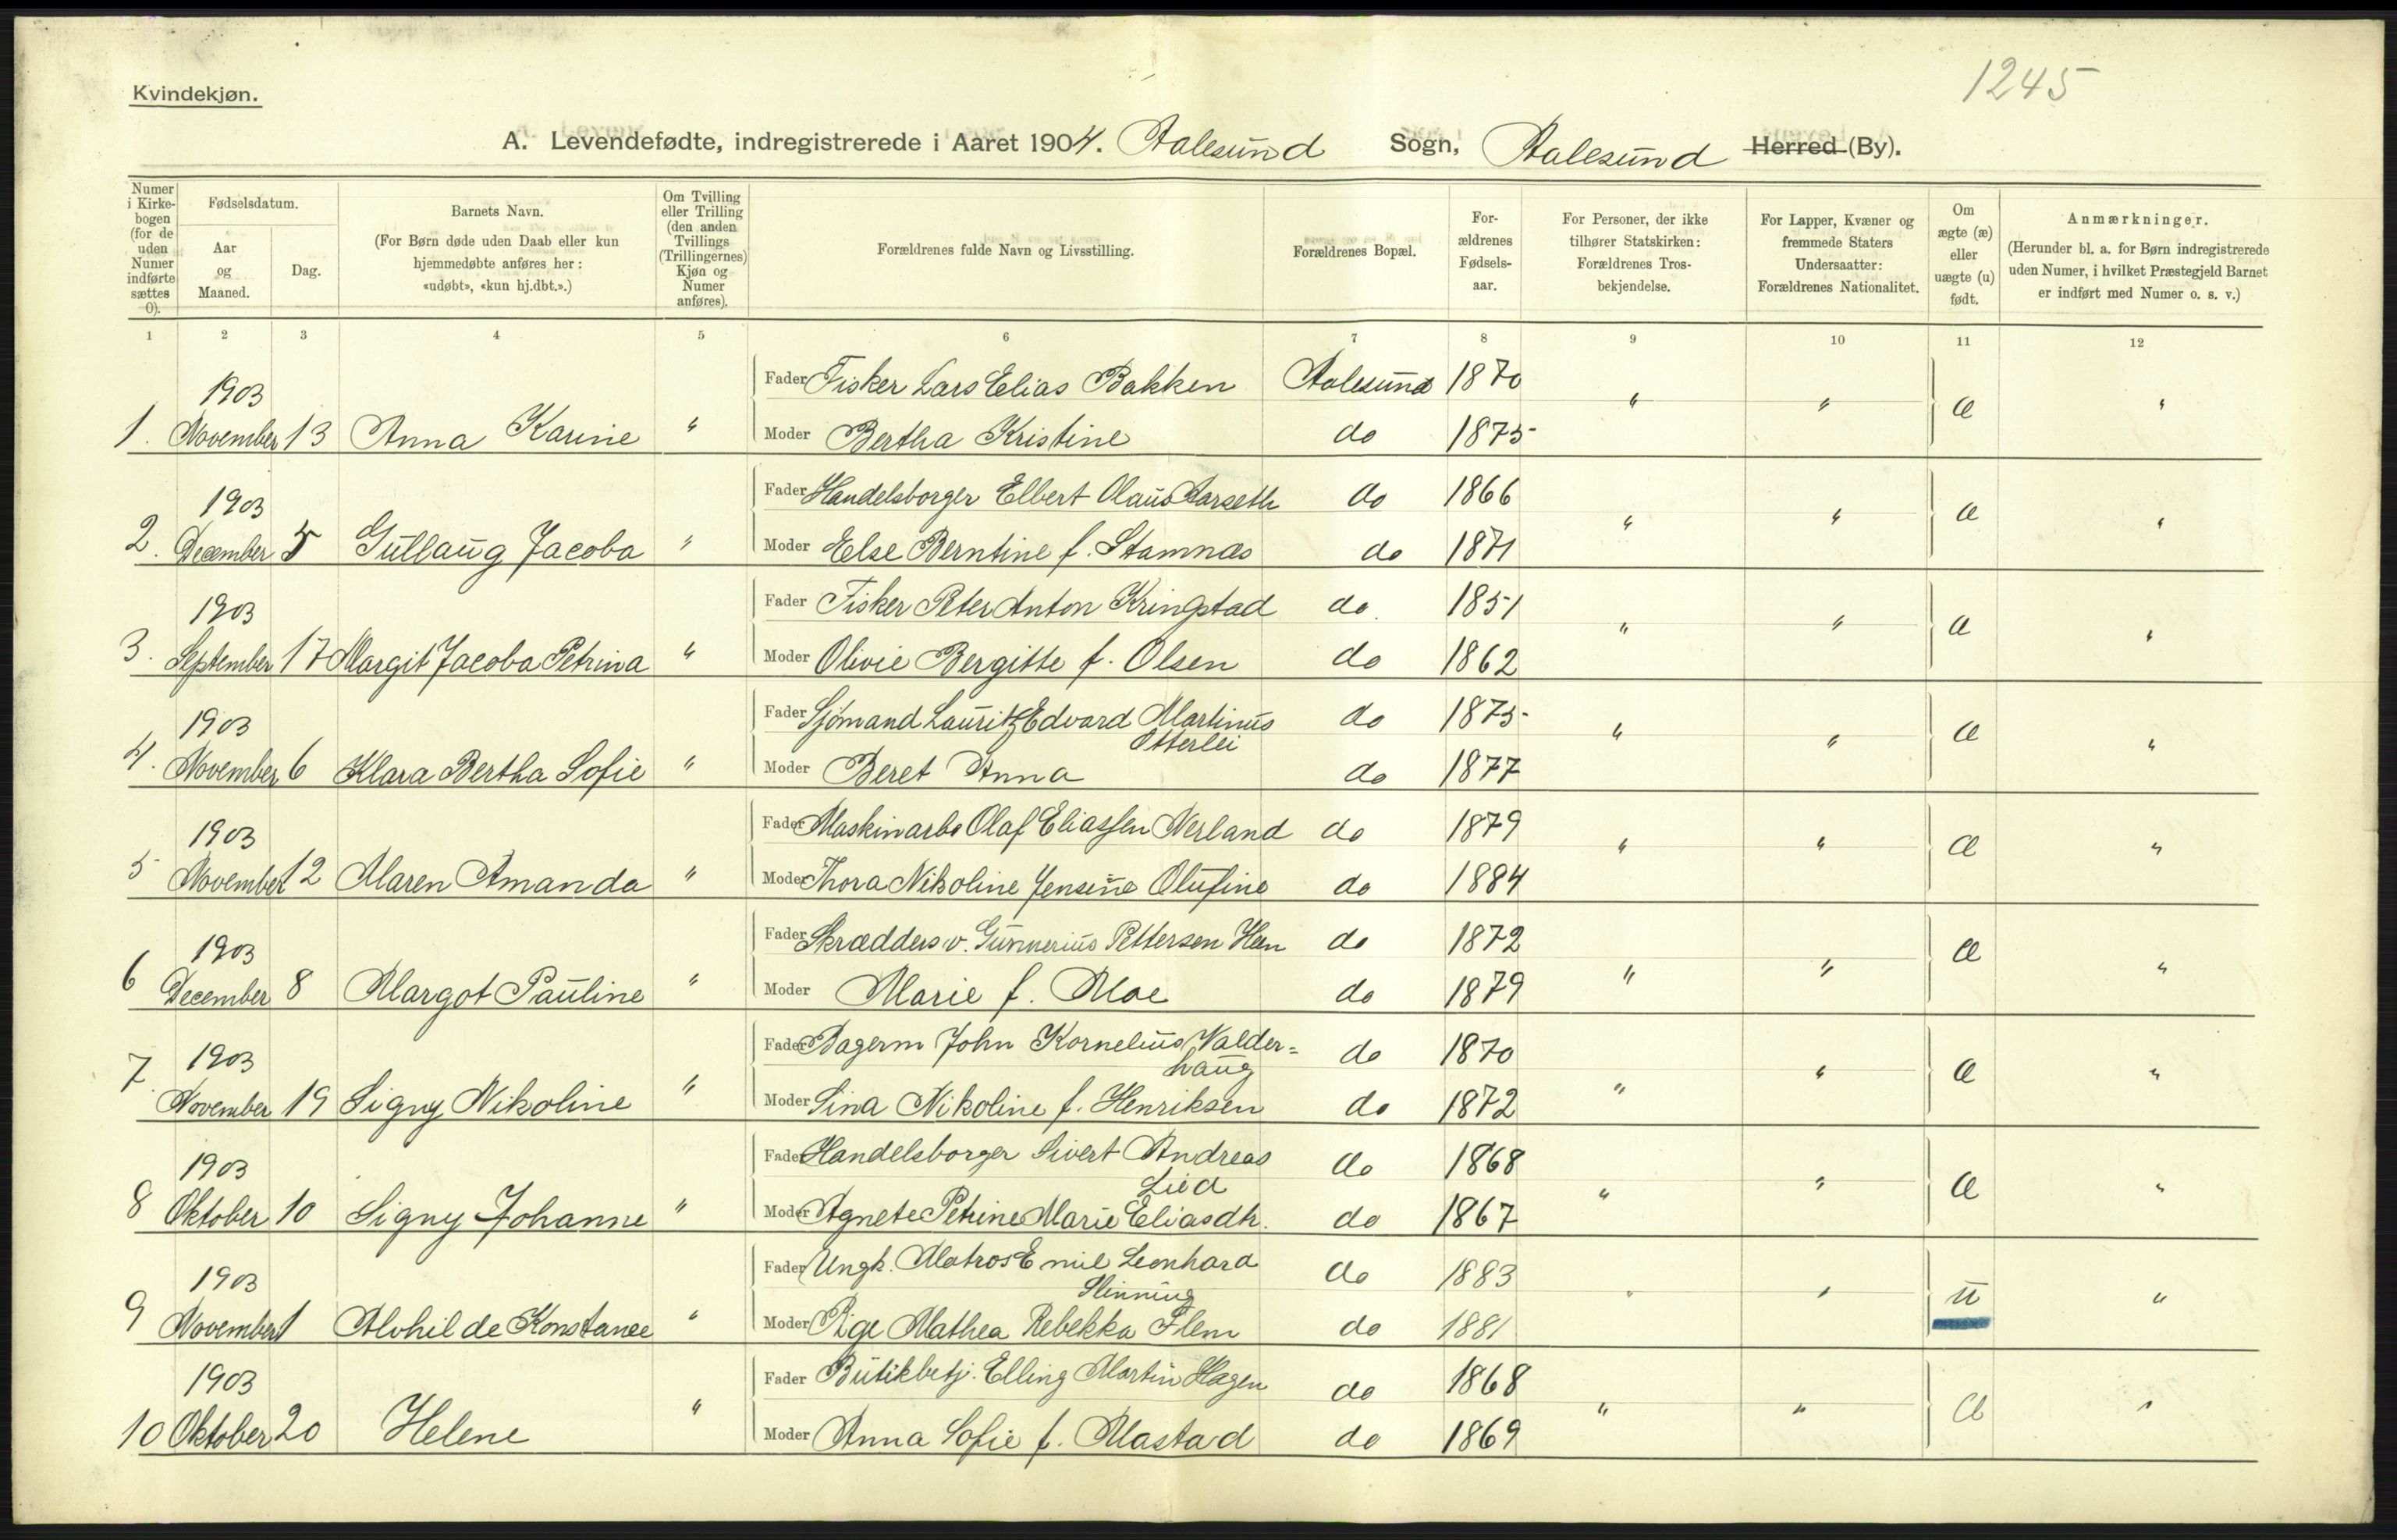 1245
Kvindekjøn.
A. Levendefødte, indregistrerede i Aaret 1904. Aalesund Sogn, Aalesund Herred (By).
Numer i Kirkebogen (for de uden Numer indførte sættes 0).
Fødselsdatum.
Aar og Maaned.
Dag.
Barnets Navn.
(For Børn døde uden Daab eller kun hjemmedøbte anføres her: «udøbt», «kun hj.dbt.».)
Om Tvilling eller Trilling (den anden Tvillings (Trillingernes) Kjøn og Numer anføres).
Forældrenes fulde Navn og Livsstilling.
Forældrenes Bopæl.
For-ældrenes Fødsels-aar.
For Personer, der ikke tilhører Statskirken: Forældrenes Tros-bekjendelse.
For Lapper, Kvæner og fremmede Staters Undersaatter: Forældrenes Nationalitet.
Om ægte (æ) eller uægte (u) født.
Anmærkninger.
(Herunder bl. a. for Børn indregistrerede uden Numer, i hvilket Præstegjeld Barnet er indført med Numer o. s. v.)
1 2 3 4 5 6 7 8 9 10 11 12
1903 Fader Fisker Lars Elias Bakken Aalesund 1870 " " æ "
1. November 13 Anna Karine " Moder Bertha Kristine do 1875
1903 Fader Handelsborger Elbert Olaus Aarseth do 1866 " " æ "
2. December 5 Gullaug Jacoba " Moder Else Berntine f. Stamnæs do 1871
1903 Fader Fisker Peter Anton Kringstad do. 1851 " " æ "
3. September 17 Margit Jacoba Petrina " Moder Olivie Bergitte f. Olsen do 1862
1903 Fader Sjømand Lauritz Edvard Martinus do 1875 " " æ "
Otterlei
4. November 6 Klara Bertha Sofie " Moder Beret Anna do 1877
1903 Fader Maskinarb. Olaf Eliassen Nerland do 1879 " " æ "
5 November 12 Maren Amanda " Moder Thora Nikoline Jensine Olufine do 1884
1903 Fader Skrædders v. Gunnerius Pettersen Hen do 1872 " " æ "
6 December 8 Margot Pauline " Moder Marie f. Moe do 1879
1903 Fader Bagerm John Kornelius Valder=
haug do 1870 " " æ "
7. November 19 Signy Nikoline " Moder Sina Nikoline f. Henriksen do 1872
1903 Fader Handelsborger Sivert Andreas
Lied do 1868 " " æ "
8 Oktober 10 Signy Johanne " Moder Agnete Petrine Marie Eliasdtr. do 1867
1903 Fader Ungk. Matros Emil Leonhard
Slinning do 1883 " " u "
9 November 1 Alvhilde Konstance " Moder Pige Mathea Rebekka Flem do 1881
1903 Fader Butikbetj. Elling Martin Hagen do 1868 " " æ "
10 Oktober 20 Helene " Moder Anna Sofie f. Mastad do 1869